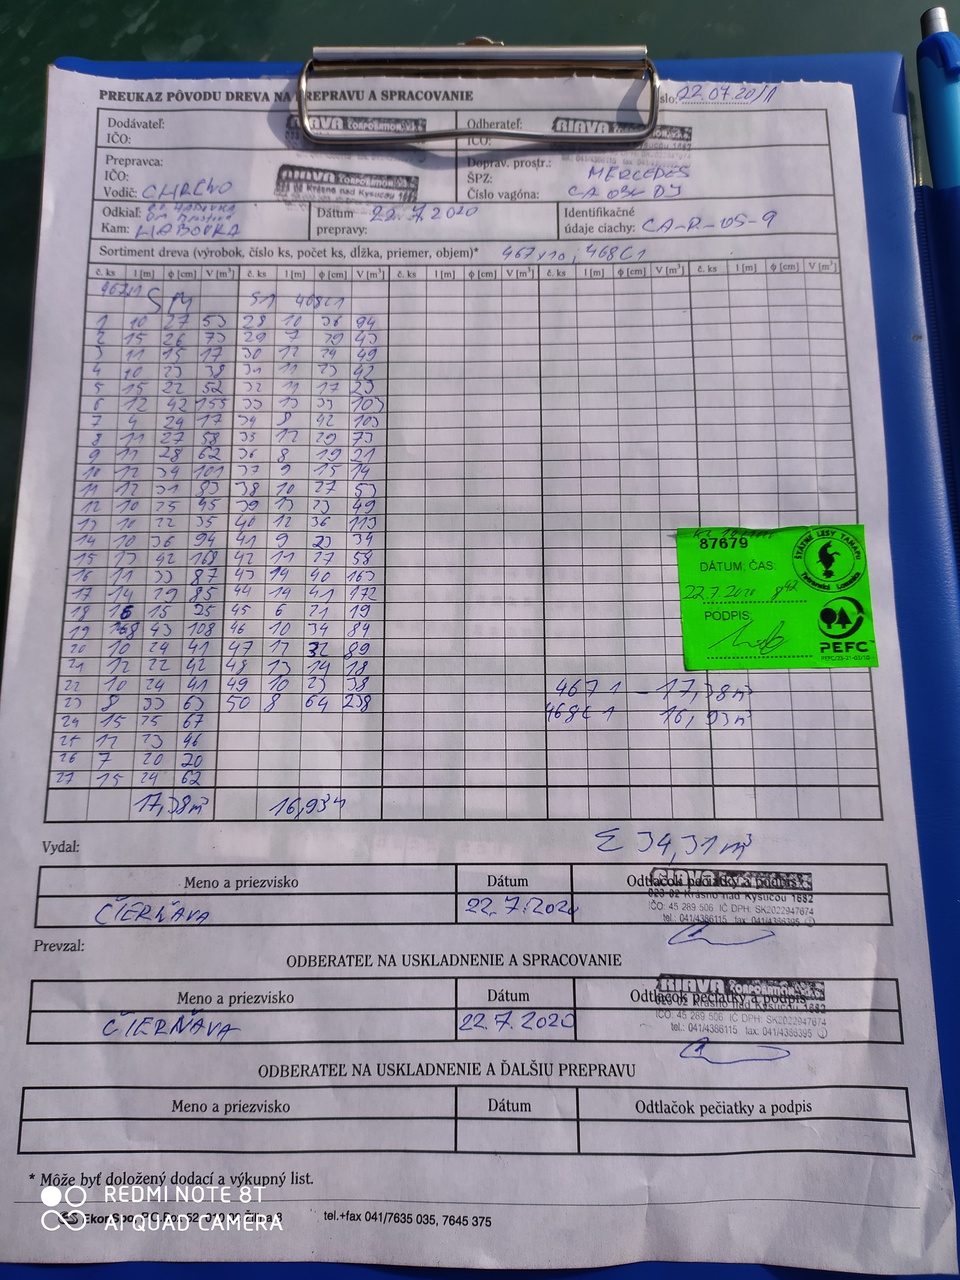 PREUKAZ PÔVODU DREVA NA PREPRAVU A SPRACOVANIE
slo: 22.07.20/1
Dodávateľ:
IČO:
Odberateľ:
IČO:
Prepravca:
IČO:
Vodič:
Doprav. prostr.: MERCEDES
ŠPZ:
Číslo vagóna:
RIAVA CORPORATION
023 02 Krásno nad Kysucou 1682
Odkiaľ:
Kam: HABOVKA
Dátum prepravy: 22.7.2020
Identifikačné údaje ciachy: CA-R-05-9
Sortiment dreva (výrobok, číslo ks, počet ks, dĺžka, priemer, objem)*
č. ks l [m] φ [cm] V [m³] č. ks l [m] φ [cm] V [m³] č. ks l [m] φ [cm] V [m³] č. ks l [m] φ [cm] V [m³] č. ks l [m] φ [cm] V [m³]
SM 468C1
1 10 27 53 28 10 36 94
2 15 26 73 29 7 29 43
3 11 15 17 30 12 24 49
4 10 23 38 31 11 23 42
5 15 22 52 32 11 17 23
6 12 42 155 33 13 33 103
7 4 24 17 34 8 42 103
8 11 27 58 35 12 29 73
9 11 28 62 36 8 19 21
10 12 34 101 37 9 15 14
11 12 31 83 38 10 27 53
12 10 25 45 39 13 23 49
13 10 22 35 40 12 36 113
14 10 36 94 41 9 23 34
15 13 42 168 42 11 27 58
16 11 33 87 43 14 40 163
17 14 29 85 44 14 41 172
18 16 15 25 45 6 21 19
19 8 43 108 46 10 34 84
20 10 24 41 47 12 32 89
21 12 22 42 48 13 14 18
22 10 24 41 49 10 23 38
23 8 33 63 50 8 64 238
24 15 25 67
25 12 23 46
26 7 20 20
27 15 24 62
17,38m³ 16,93
87679
DÁTUM, ČAS:
22.7.2020 8⁴²
PODPIS:
ŠTÁTNE LESY TANAPu
Tatranská Lomnica
PEFC™
467 1 – 17,38m³
468C 1 16,93m³
Σ 34,31m³
Vydal:
Meno a priezvisko Dátum Odtlačok pečiatky a podpis
ČIERŇAVA 22.7.2020
023 02 Krásno nad Kysucou 1682
IČO: 45 289 506 IČ DPH: SK2022947674
tel.: 041/4386115 fax: 041/4386395
Prevzal:
ODBERATEĽ NA USKLADNENIE A SPRACOVANIE
Meno a priezvisko Dátum Odtlačok pečiatky a podpis
ČIERŇAVA 22.7.2020
RIAVA CORPORATION
023 02 Krásno nad Kysucou 1682
IČO: 45 289 506 IČ DPH: SK2022947674
tel.: 041/4386115 fax: 041/4386395
ODBERATEĽ NA USKLADNENIE A ĎALŠIU PREPRAVU
Meno a priezvisko Dátum Odtlačok pečiatky a podpis
* Môže byť doložený dodací a výkupný list.
REDMI NOTE 8T
AI QUAD CAMERA
EkonSpo, tel.+fax 041/7635 035, 7645 375